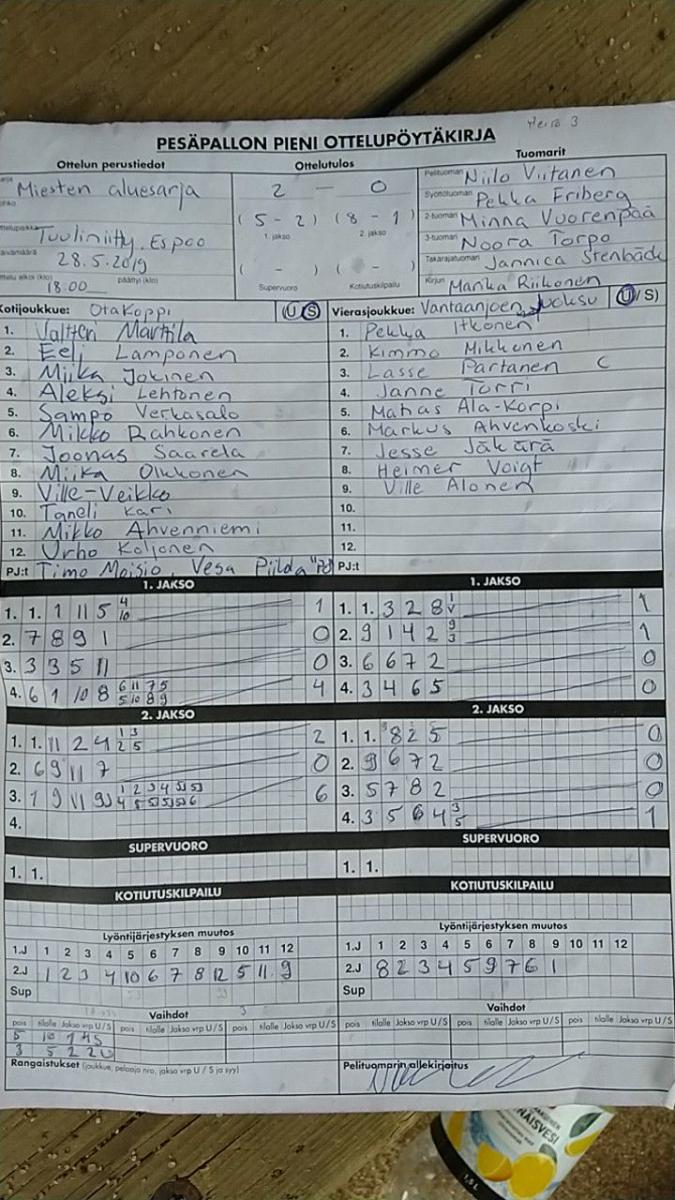 PESÄPALLON PIENI OTTELUPÖYTÄKIRJA
Ottelun perustiedot
Ottelutulos
Tuomarit
Miesten aluesarja
Tuuliniitty, Espoo
28.5.2019
18:00
päättyi (klo)
2 - 0
(5 - 2) (8 - 1)
1. jakso 2. jakso
( - ) ( - )
Supervuoro Kotiutuskilpailu
Pelituomari Niilo Viitanen
Syöttötuomari Pekka Friberg
2-tuomari Minna Vuorenpää
3-tuomari Noora Torpo
Takarajatuomari Jannica Stenbäck
Kirjuri Marika Riikonen
Kotijoukkue: OtaKoppi (U/S)
1. Valtteri Marttila
2. Eeli Lamponen
3. Miika Jokinen
4. Aleksi Lehtonen
5. Sampo Verkasalo
6. Mikko Rahkonen
7. Joonas Saarela
8. Miika Olkkonen
9. Ville-Veikko
10. Taneli Kari
11. Mikko Ahvenniemi
12. Urho Koljonen
PJ:t Timo Moisio, Vesa Piilda
Vierasjoukkue: Vantaanjoen Juoksu (U/S)
1. Pekka Itkonen
2. Kimmo Mikkonen
3. Lasse Partanen C
4. Janne Torri
5. Mahas Ala-Korpi
6. Markus Ahvenkoski
7. Jesse Jäkärä
8. Heimer Voigt
9. Ville Alonen
10.
11.
12.
PJ:t
1. JAKSO
1. 1. 1 11 5 4 10 1
2. 7 8 9 1 0
3. 3 3 5 11 0
4. 6 1 10 8 6 11 7 5 5 10 8 9 4
1. JAKSO
1. 1. 3 2 8 1
2. 9 1 4 2 9 3 1
3. 6 6 7 2 0
4. 3 4 6 5 0
2. JAKSO
1. 1. 11 2 4 1 3 2 5 2
2. 6 9 11 7 0
3. 1 9 11 6
4.
2. JAKSO
1. 1. 8 2 5 0
2. 9 6 7 2 0
3. 5 7 8 2 0
4. 3 5 6 4 3 5 1
SUPERVUORO
1. 1.
SUPERVUORO
1. 1.
KOTIUTUSKILPAILU
KOTIUTUSKILPAILU
Lyöntijärjestyksen muutos
1.J 1 2 3 4 5 6 7 8 9 10 11 12
2.J 1 2 3 4 10 6 7 8 12 5 11 9
Sup
Lyöntijärjestyksen muutos
1.J 1 2 3 4 5 6 7 8 9 10 11 12
2.J 8 2 3 4 5 9 7 6 1
Sup
Vaihdot
pois tilalle Jakso vrp U/S pois tilalle Jakso vrp U/S pois tilalle Jakso vrp U/S
5 10 1 4S
3 5 2 2U
Vaihdot
pois tilalle Jakso vrp U/S pois tilalle Jakso vrp U/S pois tilalle Jakso vrp U/S
Rangaistukset (joukkue, pelaaja nro, jakso vrp U / S ja syy)
Pelituomarin allekirjoitus
1,5 L